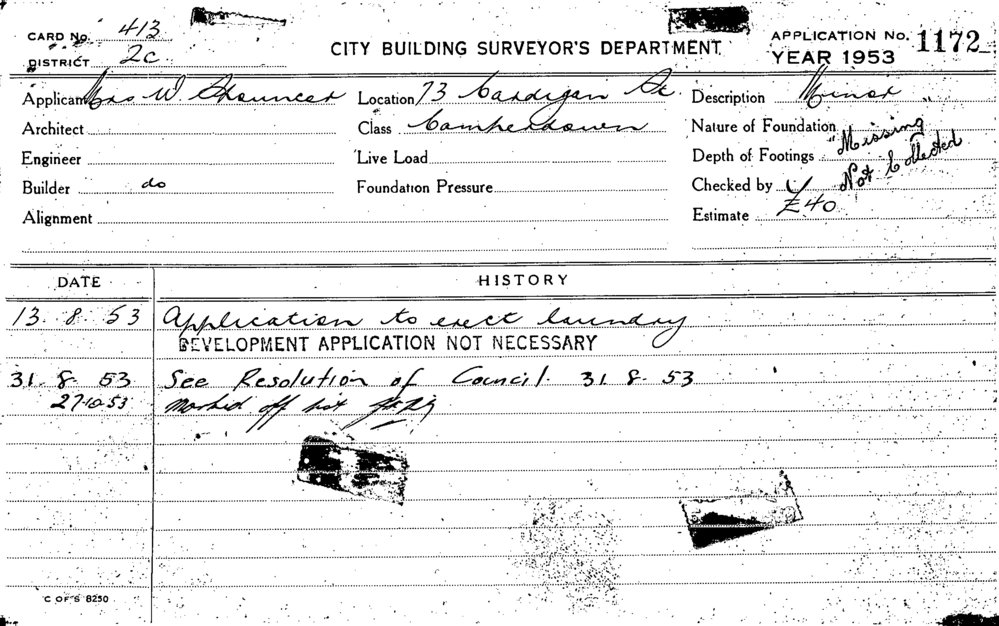 CARD No. 413
DISTRICT 2C
CITY BUILDING SURVEYOR'S DEPARTMENT
APPLICATION NO. 1172
YEAR 1953
Applicant Mrs W Location 73 Cardigan St. Description Minor
Architect Class Camperdown Nature of Foundation
Engineer Live Load Depth of Footings "Missing"
Builder do Foundation Pressure Checked by Not Collected
Alignment Estimate £40
DATE HISTORY
13. 8. 53 Application to erect laundry
DEVELOPMENT APPLICATION NOT NECESSARY
31. 8. 53 See Resolution of Council. 31. 8. 53
27.10.53 Marked off list
C OF S 8250